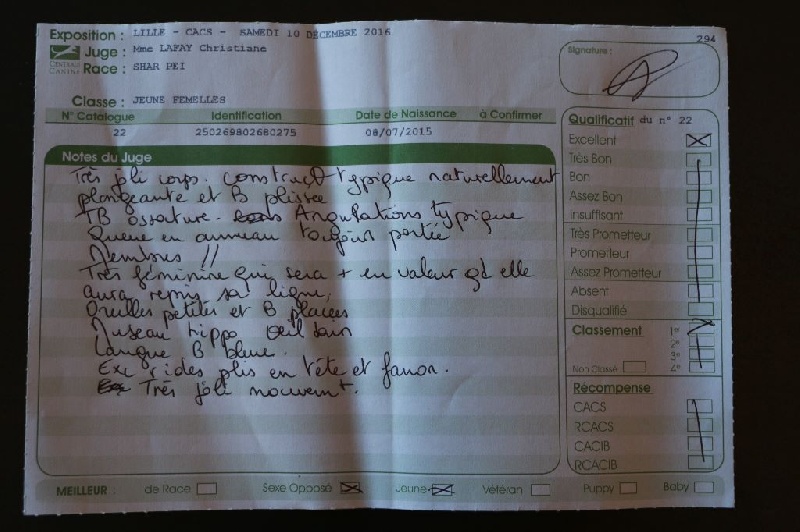 Exposition : LILLE - CACS - SAMEDI 10 DECEMBRE 2016
294
Juge : Mme LAFAY Christiane
Race : SHAR PEI
Signature :
Classe : JEUNE FEMELLES
N° Catalogue Identification Date de Naissance à Confirmer
22 250269802680275 08/07/2015
Qualificatif du n° 22
Excellent
Très Bon
Bon
Assez Bon
Insuffisant
Très Prometteur
Prometteur
Assez Prometteur
Absent
Disqualifié
Classement 1er
2e
3e
Non Classé 4e
Récompense
CACS
RCACS
CACIB
RCACIB
Notes du Juge
Très joli corps. Construct° typique naturellement
plongeante et B plissée
TB ossature. Angulations typique
Queue en anneau toujours portée
Membres //
Très féminine qui sera + en valeur qd elle
aura repris sa ligne,
Oreilles petites et B placées
Museau hippo Oeil sain
Langue B bleue.
Exc rides plis en tête et fanon.
Très joli mouvemt.
MEILLEUR : de Race Sexe Opposé Jeune Vétéran Puppy Baby